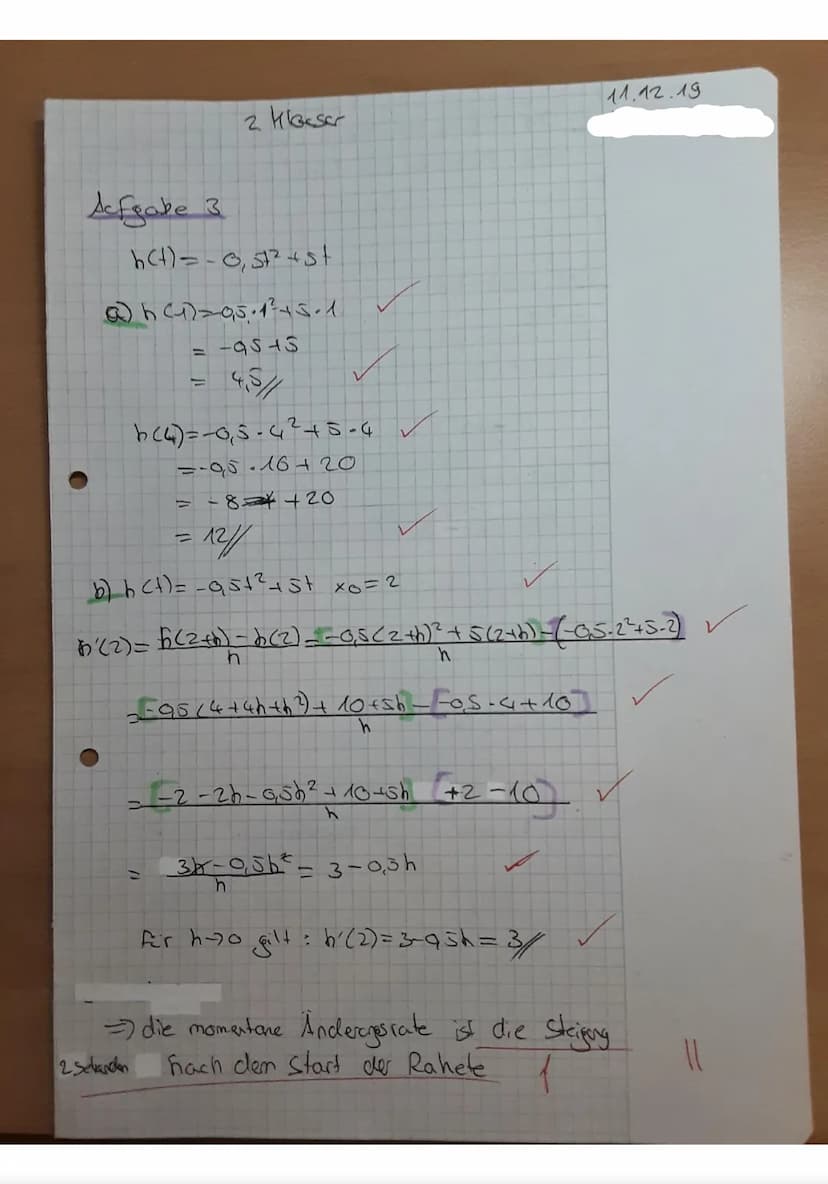 11.12.19
2 Klausur
Aufgabe 3
h(t)=-0,5t²+5t
a) h(1)=-0,5·1²+5·1
= -0,5+5
= 4,5//
h(4)=-0,5·4²+5·4
=-0,5·16+20
= -8 +20
= 12//
b) h(t)=-0,5t²+5t x0=2
h'(2)= (h(2+h)-h(2))/h = ([-0,5(2+h)²+5(2+h)]-[-0,5·2²+5·2])/h
= ([-0,5(4+4h+h²)+10+5h]-[-0,5·4+10])/h
= ([-2-2h-0,5h²+10+5h] [+2-10])/h
= (3h-0,5h²)/h = 3-0,5h
Für h→0 gilt: h'(2)=3-0,5h=3//
=> die momentane Änderungsrate ist die Steigung
2 Sekunden nach dem Start der Rakete